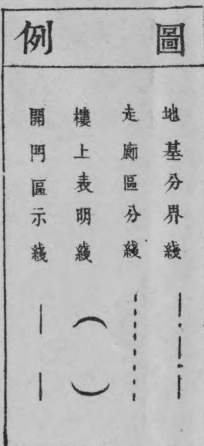 圖例
地基分界綫
走廊區分綫
樓上表明綫
開門區示綫